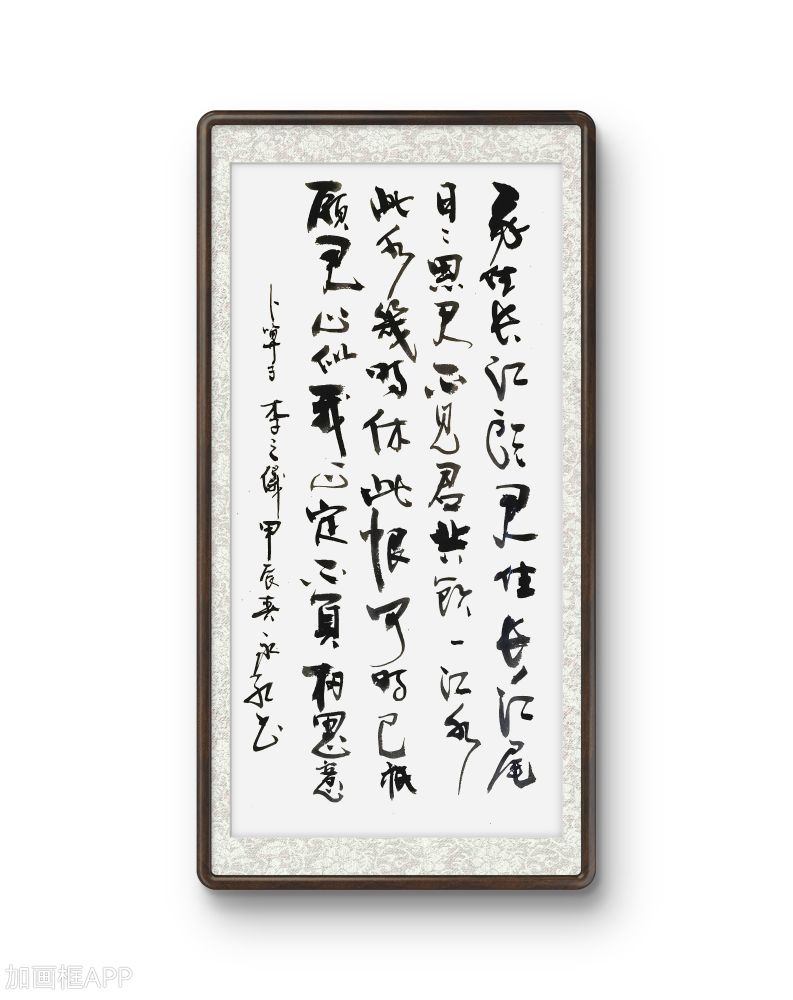 我住长江頭君住长江尾
日々思君不見君共飲一江水
此水幾时休此恨何时已祇
願君心似我心定不負相思意
卜算子李之儀甲辰春永书
加画框APP